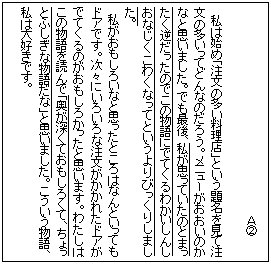 A②
私は始め「注文の多い料理店」という題名を見て注
文の多いってどんなのだろう。メニューがおおいのか
なと思いました。でも最後、私が思っていたのとまっ
たく逆だったのでこの物語にでてくるわかいしんし
おなじくこわくなってというよりびっくりしまし
た。
私がおもしろいなと思ったところはなんといっても
ドアです。次々にいろいろな注文がかかれたドアが
でてくるのがおもしろかったと思います。わたしは
この物語を読んで、奥が深くておもしろくて、ちょっ
とふしぎな物語だなと思いました。こういう物語、
私は大好きです。